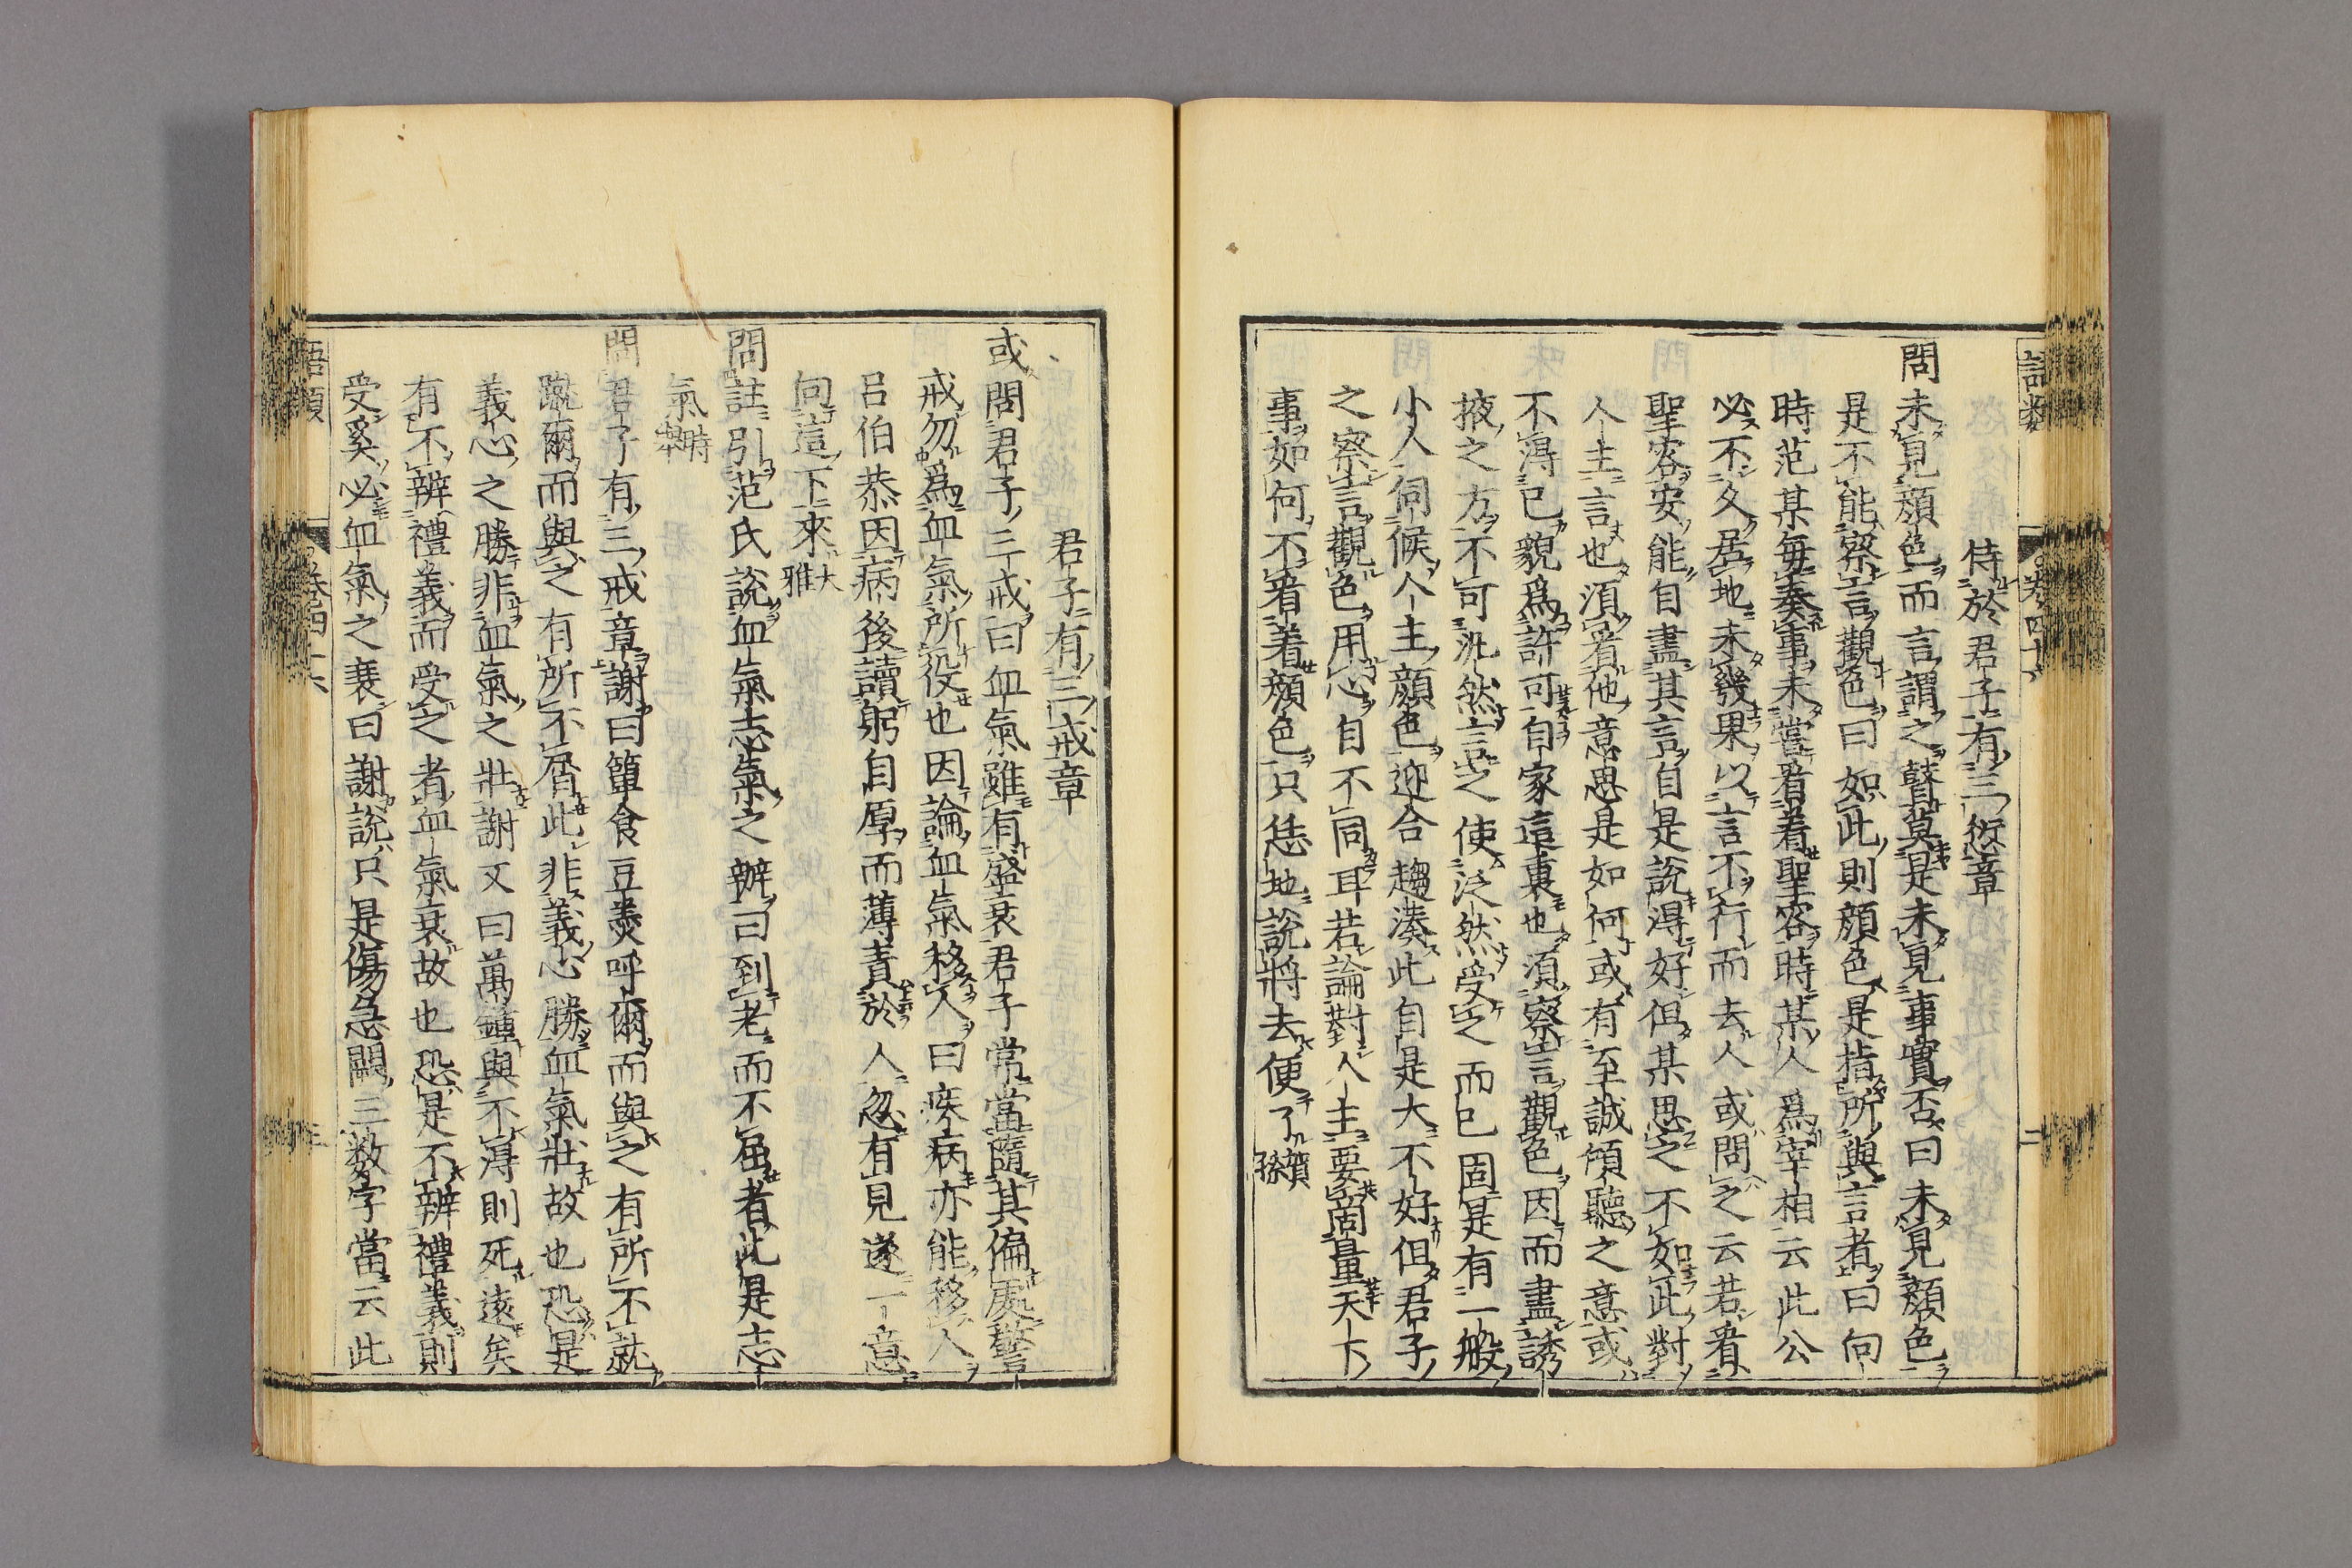 侍於君子有三愆章
問未見顏色而言謂之瞽莫是未見事實否曰未見顏色
是不能察言觀色曰如此則顏色是指所與言者曰向
時范某每奏事未嘗看着聖容時某人爲宰相云此公
必不久居地未幾果以言不行而去人或問之云若看
聖容安能自盡其言自是說得好但某思之不如此對
人主言也須看他意思是如何或有至誠傾聽之意或
不得已貌爲許可自家這裏也須察言觀色因而盡誘
掖之方不可泛然言之使泛然受之而已固是有一般
小人伺候人主顏色迎合趨湊此自是大不好但君子
之察言觀色用心自不同耳若論對人主要商量天下
事如何不看着顏色只恁地說將去便了賀孫
君子有三戒章
或問君子三戒曰血氣雖有盛衰君子常當隨其偏處警
戒勿爲血氣所役也因論血氣移人曰疾病亦能移人
呂伯恭因病後讀躬自厚而薄責於人忽有見遂一意
向這下來大雅
問註引范氏說血氣志氣之辨曰到老而不屈者此是志
氣時舉
問君子有三戒章謝曰簞食豆羹呼爾而與之有所不就
蹴爾而與之有所不屑此非義心勝血氣壯故也恐是
義心之勝非血氣之壯謝又曰萬鍾與不得則死遠矣
有不辨禮義而受之者血氣衰故也恐是不辨禮義則
受奚必血氣之衰曰謝說只是傷急闕三数字當云此
語類 卷四十六